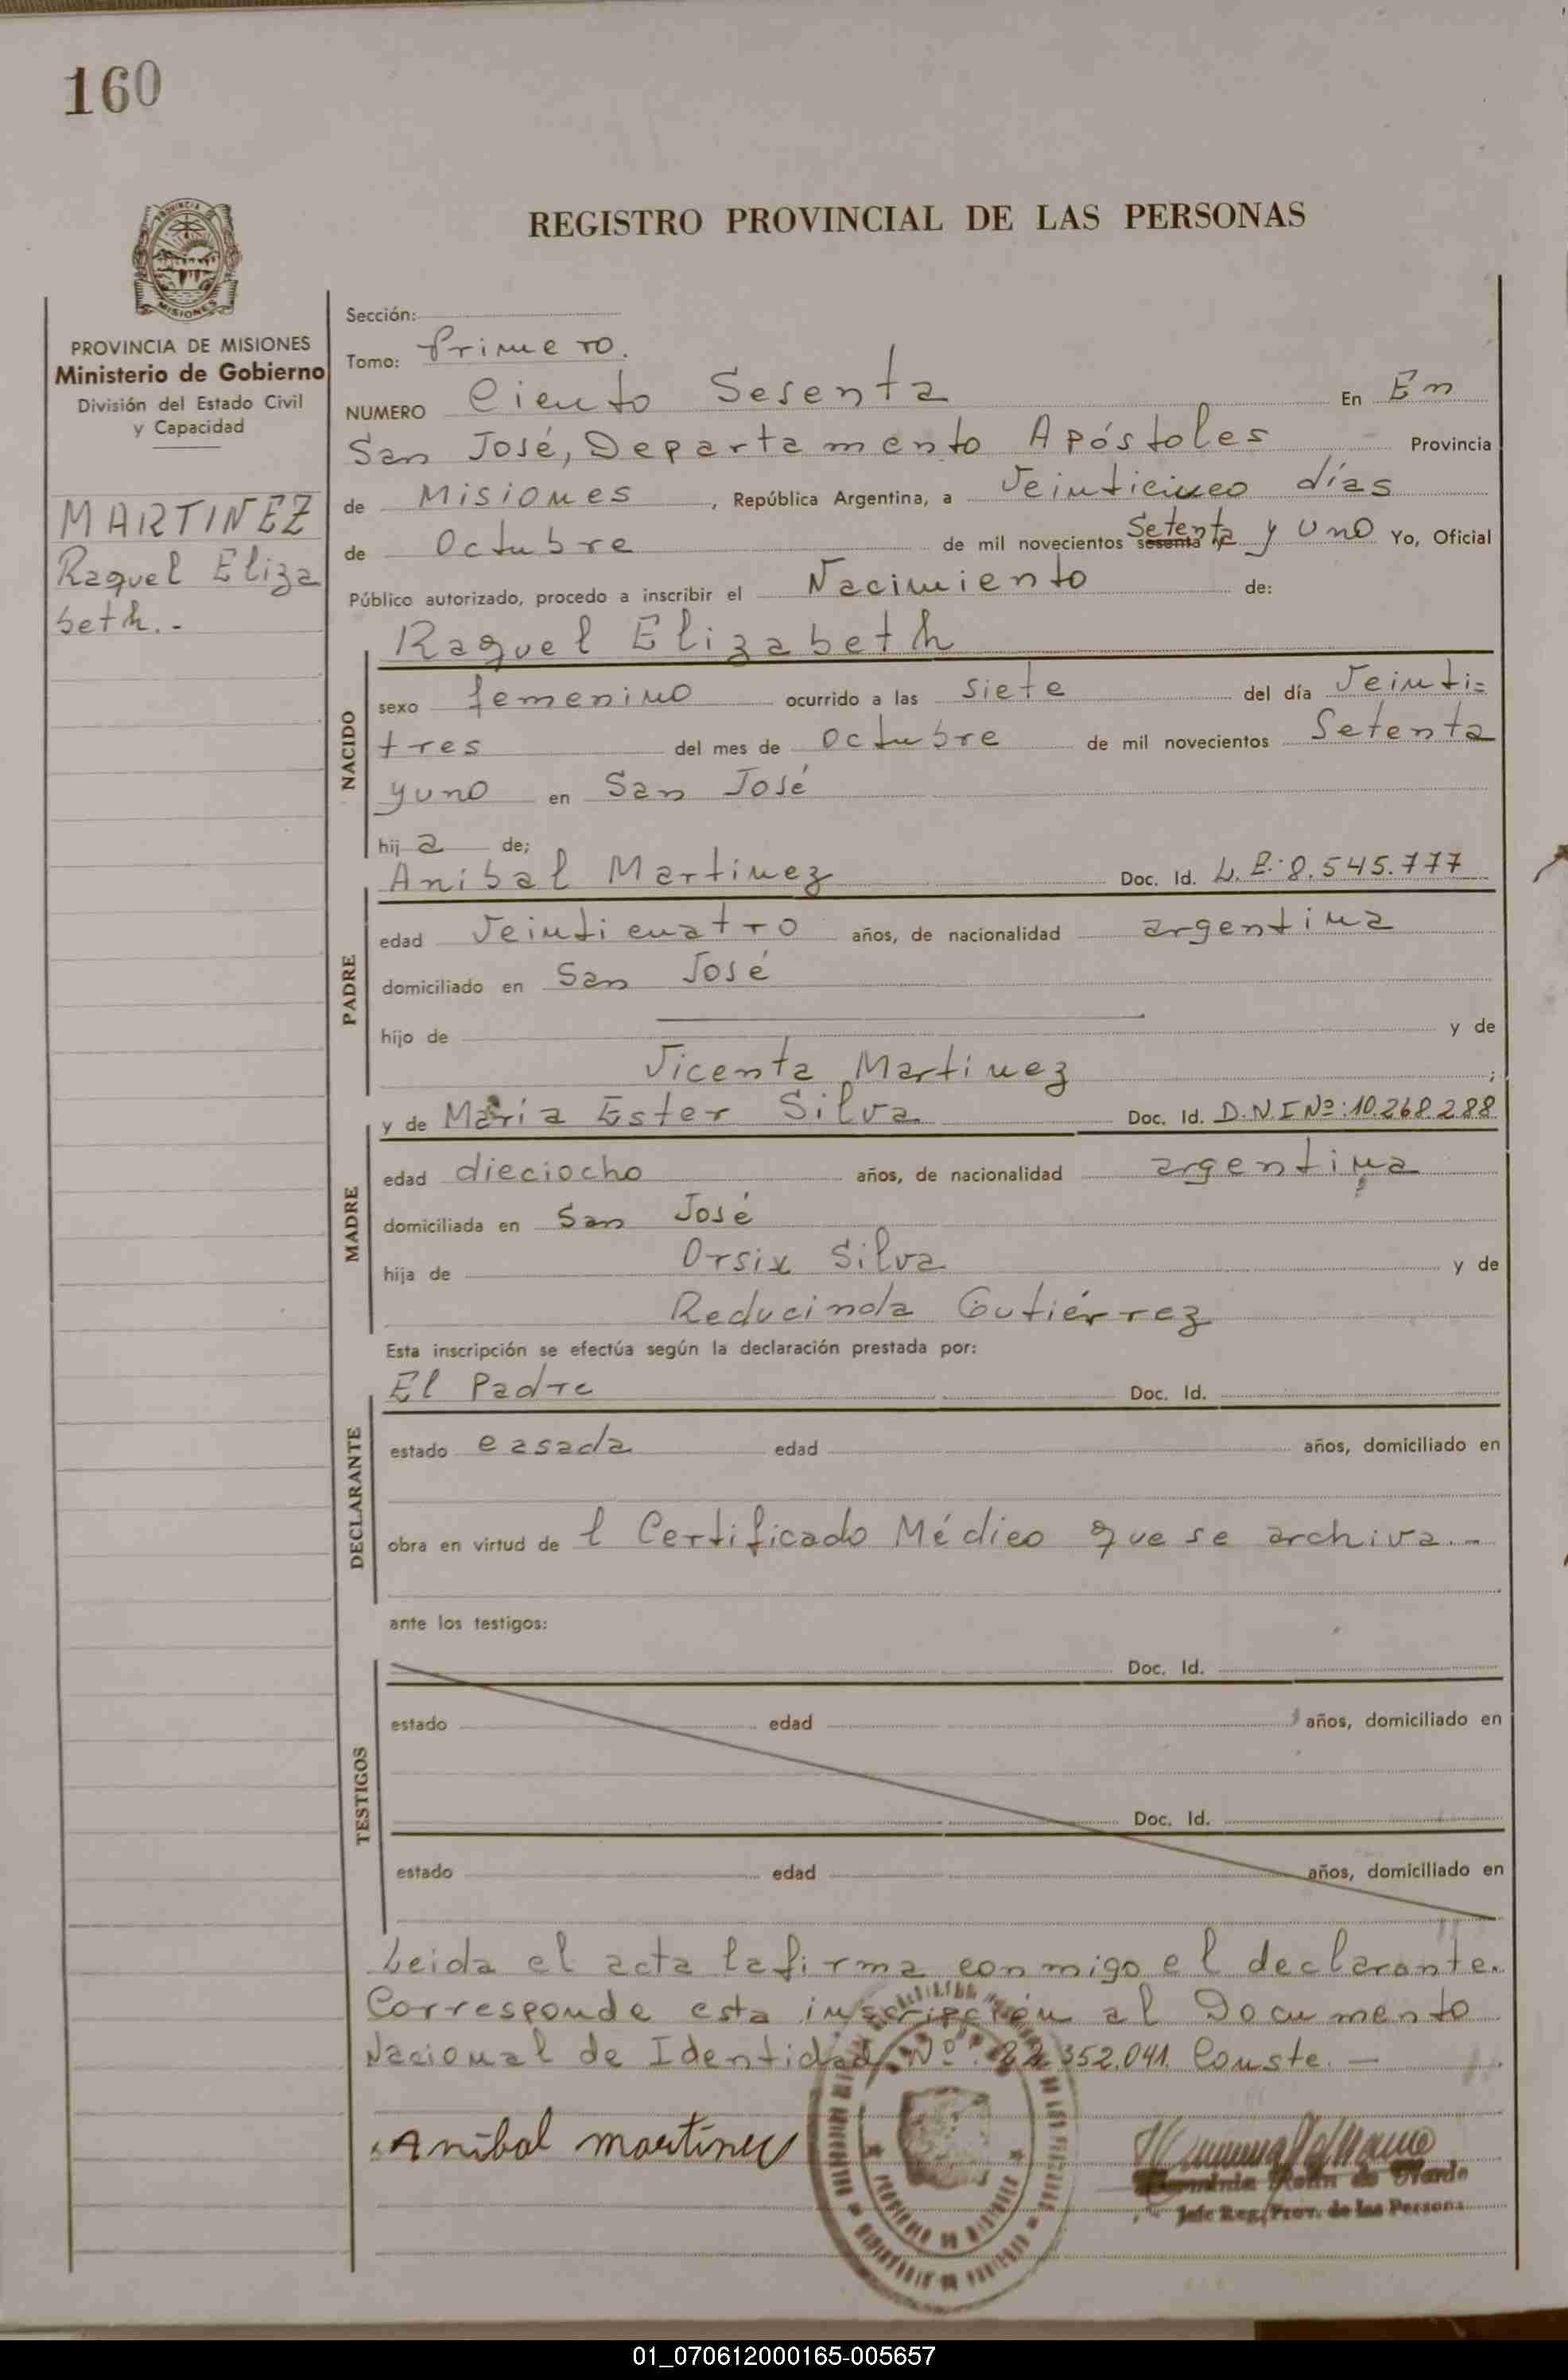 160
REGISTRO PROVINCIAL DE LAS PERSONAS
PROVINCIA DE MISIONES
Ministerio de Gobierno
División del Estado Civil
y Capacidad
MARTINEZ
Raquel Eliza
beth.-
Sección:
Tomo: Primero.
NUMERO Ciento Sesenta En En
San José, Departamento Apóstoles Provincia
de Misiones, República Argentina, a Veinticinco días
de Octubre de mil novecientos sesenta y Setenta y uno Yo, Oficial
Público autorizado, procedo a inscribir el Nacimiento de:
Raquel Elizabeth
NACIDO
sexo femenino ocurrido a las siete del día Veinti=
tres del mes de Octubre de mil novecientos Setenta
y uno en San José
hij a de;
Anibal Martinez Doc. Id. L.E: 8.545.777
PADRE
edad Veinticuatro años, de nacionalidad argentina
domiciliado en San José
hijo de y de
Vicenta Martinez ;
y de María Ester Silva Doc. Id. D.N.I Nº: 10.268.288
MADRE
edad dieciocho años, de nacionalidad argentina
domiciliada en San José
hija de Orsix Silva y de
Reducinda Gutiérrez
Esta inscripción se efectúa según la declaración prestada por:
El Padre Doc. Id.
DECLARANTE
estado casada edad años, domiciliado en
obra en virtud de l Certificado Médico que se archiva.--
ante los testigos:
TESTIGOS
Doc. Id.
estado edad años, domiciliado en
Doc. Id.
estado edad años, domiciliado en
Leida el acta la firma conmigo el declarante.
Corresponde esta inscripción al Documento
Nacional de Identidad Nº: 352.041. Conste. —
Anibal martinez
de
Jefe Reg. Prov. de las Persona
PROVINCIA DE MISIONES
01_070612000165-005657